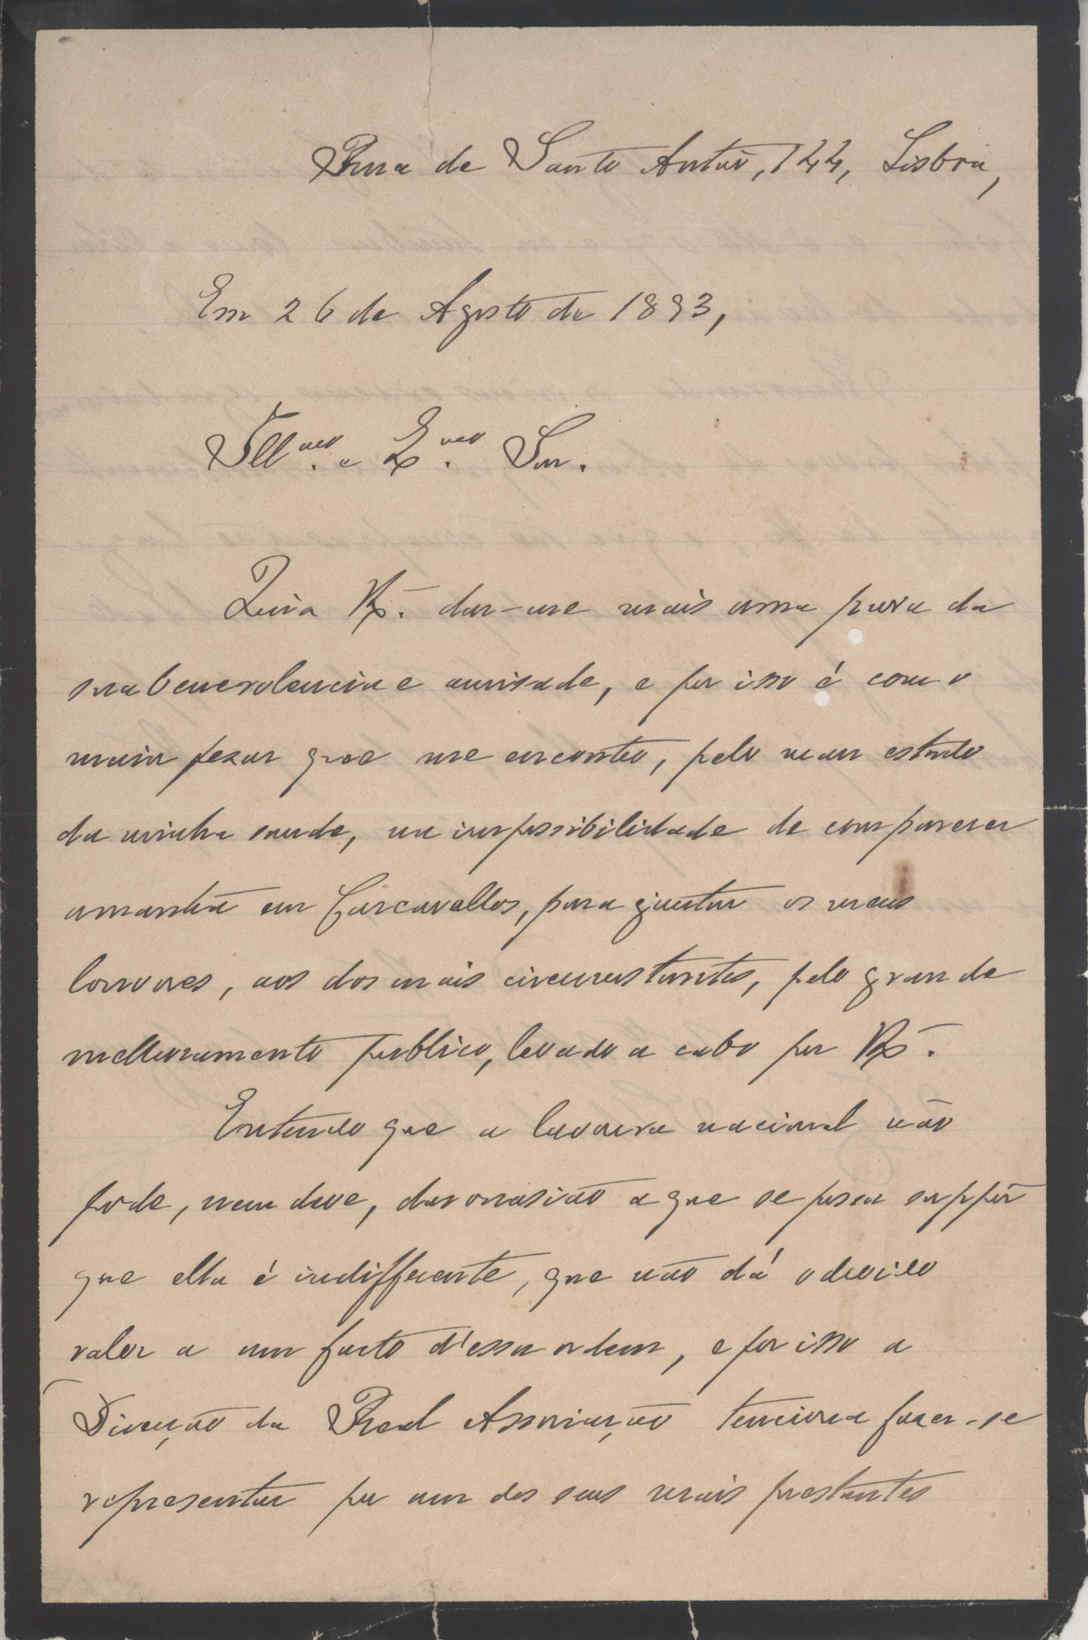 Rua de Santo Antão, 144, Lisboa,
Em 26 de Agosto de 1893,
Illmo. e Exmo. Snr.
Quiz V. Ex.ª dar-me mais uma prova da
sua benevolencia e amisade, e por isso é com o
maior pezar que me encontro, pelo mau estado
da minha saude, na impossibilidade de comparecer
amanhã em Carcavellos, para juntar os meus
louvores, aos dos mais circumstantes, pelo grande
melhoramento publico, levado a cabo por V. Ex.ª.
Entendo que a lavoura nacional não
pode, nem deve, dar occasião a que se possa suppôr
que ella é indifferente, que não dá o devido
valor a um facto d'essa ordem, e por isso a
Direcção da Real Associação tenciona fazer-se
representar por um dos seus mais prestantes